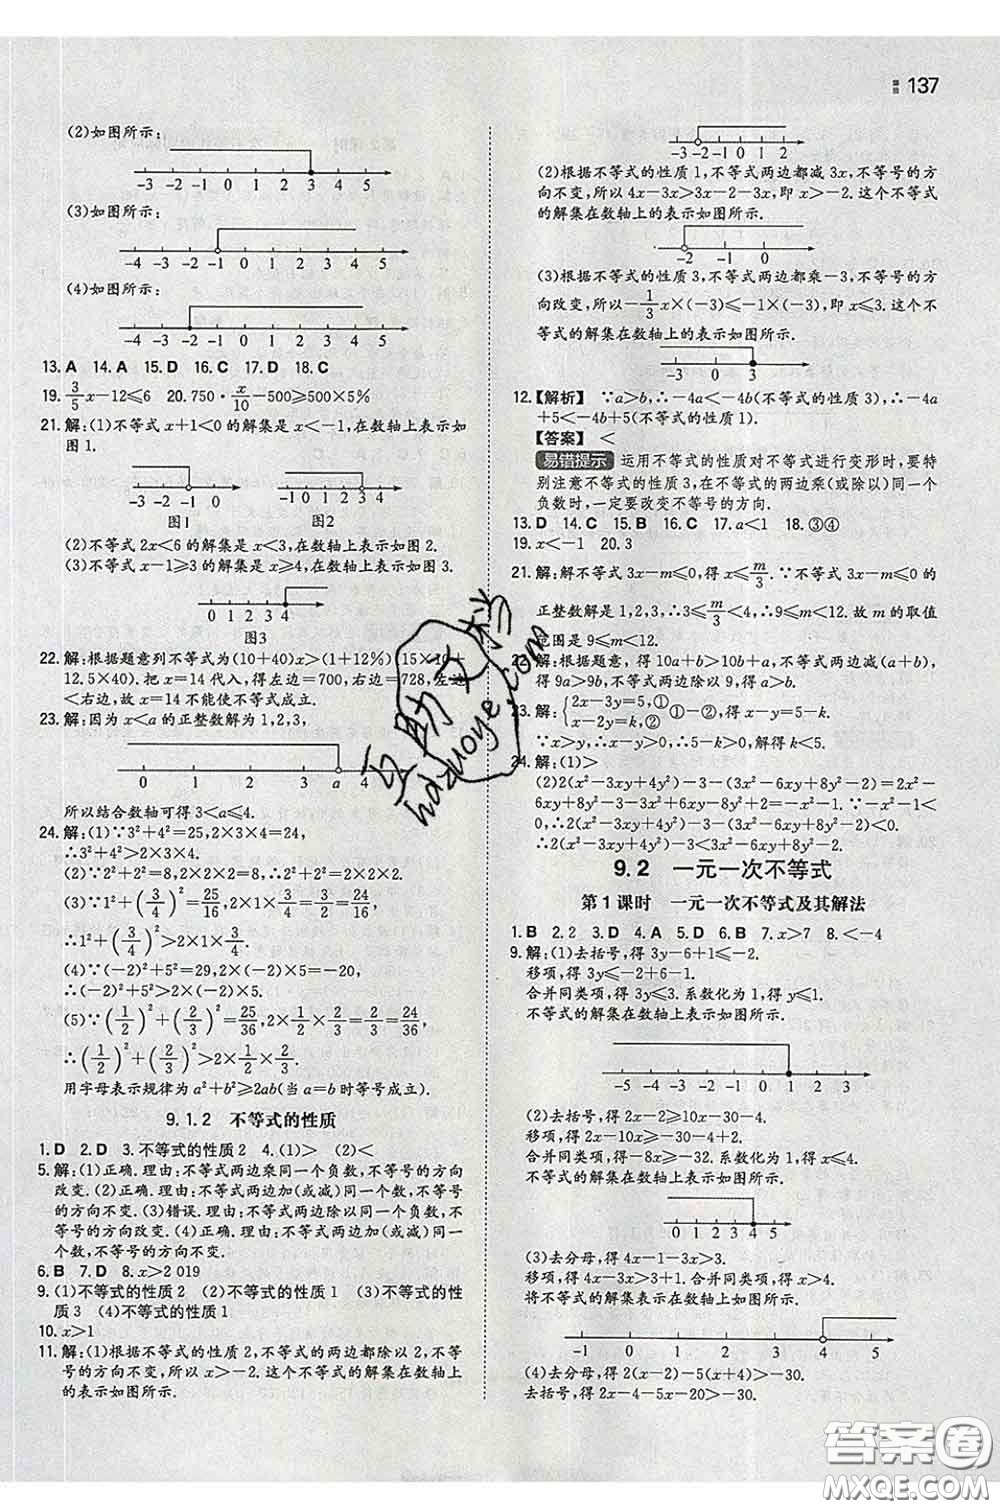 137
(2)如图所示:
-3 -2 -1 0 1 2 3 4 5
(3)如图所示:
-4 -3 -2 -1 0 1 2 3 4 5
(4)如图所示:
-4 -3 -2 -1 0 1 2 3 4 5
13. A 14. A 15. D 16. C 17. D 18. C
19. 3/5 x-12≤6 20. 750·x/10-500≥500×5%
21. 解:(1)不等式 x+1<0 的解集是 x<-1,在数轴上表示如
图 1.
-3 -2 -1 0 1
图1
-1 0 1 2 3 4
图2
(2)不等式 2x<6 的解集是 x<3,在数轴上表示如图 2.
(3)不等式 x-1≥3 的解集是 x≥4,在数轴上表示如图 3.
-1 0 1 2 3 4
图3
22. 解:根据题意列不等式为(10+40)x>(1+12%)(15×10+
12.5×40). 把 x=14 代入,得左边=700,右边=728,左边
<右边,故 x=14 不能使不等式成立.
23. 解:因为 x<a 的正整数解为 1,2,3,
0 1 2 3 a 4
所以结合数轴可得 3<a≤4.
24. 解:(1)∵3²+4²=25,2×3×4=24,
∴3²+4²>2×3×4.
(2)∵2²+2²=8,2×2×2=8,∴2²+2²=2×2×2.
(3)∵1²+(3/4)²=25/16,2×1×3/4=24/16,
∴1²+(3/4)²>2×1×3/4.
(4)∵(-2)²+5²=29,2×(-2)×5=-20,
∴(-2)²+5²>2×(-2)×5.
(5)∵(1/2)²+(2/3)²=25/36,2×1/2×2/3=2/3=24/36,
∴(1/2)²+(2/3)²>2×1/2×2/3.
用字母表示规律为 a²+b²≥2ab(当 a=b 时等号成立).
9.1.2 不等式的性质
1. D 2. D 3. 不等式的性质 2 4. (1)> (2)<
5. 解:(1)正确. 理由:不等式两边乘同一个负数,不等号的方向
改变. (2)正确. 理由:不等式两边加(或减)同一个数,不等号
的方向不变. (3)错误. 理由:不等式两边除以同一个负数,不
等号的方向改变. (4)正确. 理由:不等式两边加(或减)同一
个数,不等号的方向不变.
6. B 7. D 8. x>2 019
9. (1)不等式的性质 2 (2)不等式的性质 1 (3)不等式的性
质 3 (4)不等式的性质 1
10. x>1
11. 解:(1)根据不等式的性质 2,不等式的两边都除以 2,不等
号的方向不变,所以 x>-2. 这个不等式的解集在数轴上的
表示如图所示.
-3 -2 -1 0 1 2
(2)根据不等式的性质 1,不等式两边都减 3x,不等号的方
向不变,所以 4x-3x>3x-2-3x,即 x>-2. 这个不等式
的解集在数轴上的表示如图所示.
-2 -1 0
(3)根据不等式的性质 3,不等式两边都乘-3,不等号的方
向改变,所以-1/3 x×(-3)≤-1×(-3),即 x≤3. 这个不
等式的解集在数轴上的表示如图所示.
-3 0 3
12. 【解析】 ∵a>b,∴-4a<-4b(不等式的性质 3),∴-4a
+5<-4b+5(不等式的性质 1).
【答案】 <
易错提示 运用不等式的性质对不等式进行变形时,要特
别注意不等式的性质 3,在不等式的两边乘(或除以)同一个
负数时,一定要改变不等号的方向.
13. D 14. C 15. B 16. C 17. a<1 18. ③④
19. x<-1 20. 3
21. 解:解不等式 3x-m≤0,得 x≤m/3. ∵不等式 3x-m≤0 的
正整数解是 1,2,3,∴3≤m/3<4,∴9≤m<12. 故 m 的取值
范围是 9≤m<12.
22. 解:根据题意,得 10a+b>10b+a,不等式两边减(a+b),
得 9a>9b,不等式两边除以 9,得 a>b.
23. 解:{2x-3y=5,① x-2y=k.② ①-②,得 x-y=5-k.
∵x>y,∴x-y>0. ∴5-k>0. 解得 k<5.
24. 解:(1)>
(2)2(2x²-3xy+4y²)-(3x²-6xy+8y²-2)=4x²-6xy
+8y²-3x²+6xy-8y²+2=x²+2. ∵x²≥0,∴x²+2>0,
∴2(2x²-3xy+4y²)>3x²-6xy+8y²-2.
9.2 一元一次不等式
第 1 课时 一元一次不等式及其解法
1. B 2. 2 3. D 4. A 5. D 6. B 7. x>7 8. <-4
9. 解:(1)去括号,得 3y-6+1≤-2.
移项,得 3y≤-2+6-1.
合并同类项,得 3y≤3. 系数化为 1,得 y≤1.
不等式的解集在数轴上表示如图所示.
-5 -4 -3 -2 -1 0 1 2 3
(2)去括号,得 2x-2≥10x-30-4.
移项,得 2x-10x≥2-30-4.
合并同类项,得-8x≥-32. 系数化为 1,得 x≤4.
不等式的解集在数轴上表示如图所示.
0 1 2 3 4 5
(3)去分母,得 4x-1-3x>3.
移项,得 4x-3x>3+1. 合并同类项,得 x>4.
将不等式的解集表示在数轴上如图所示.
-1 0 1 2 3 4 5
(4)去分母,得 2(2x-2)-5(x+1)>-30.
去括号,得 2x-4-5x-5>-30.
互助文档
hdzuoye.com
答案圈
MXQE.COM